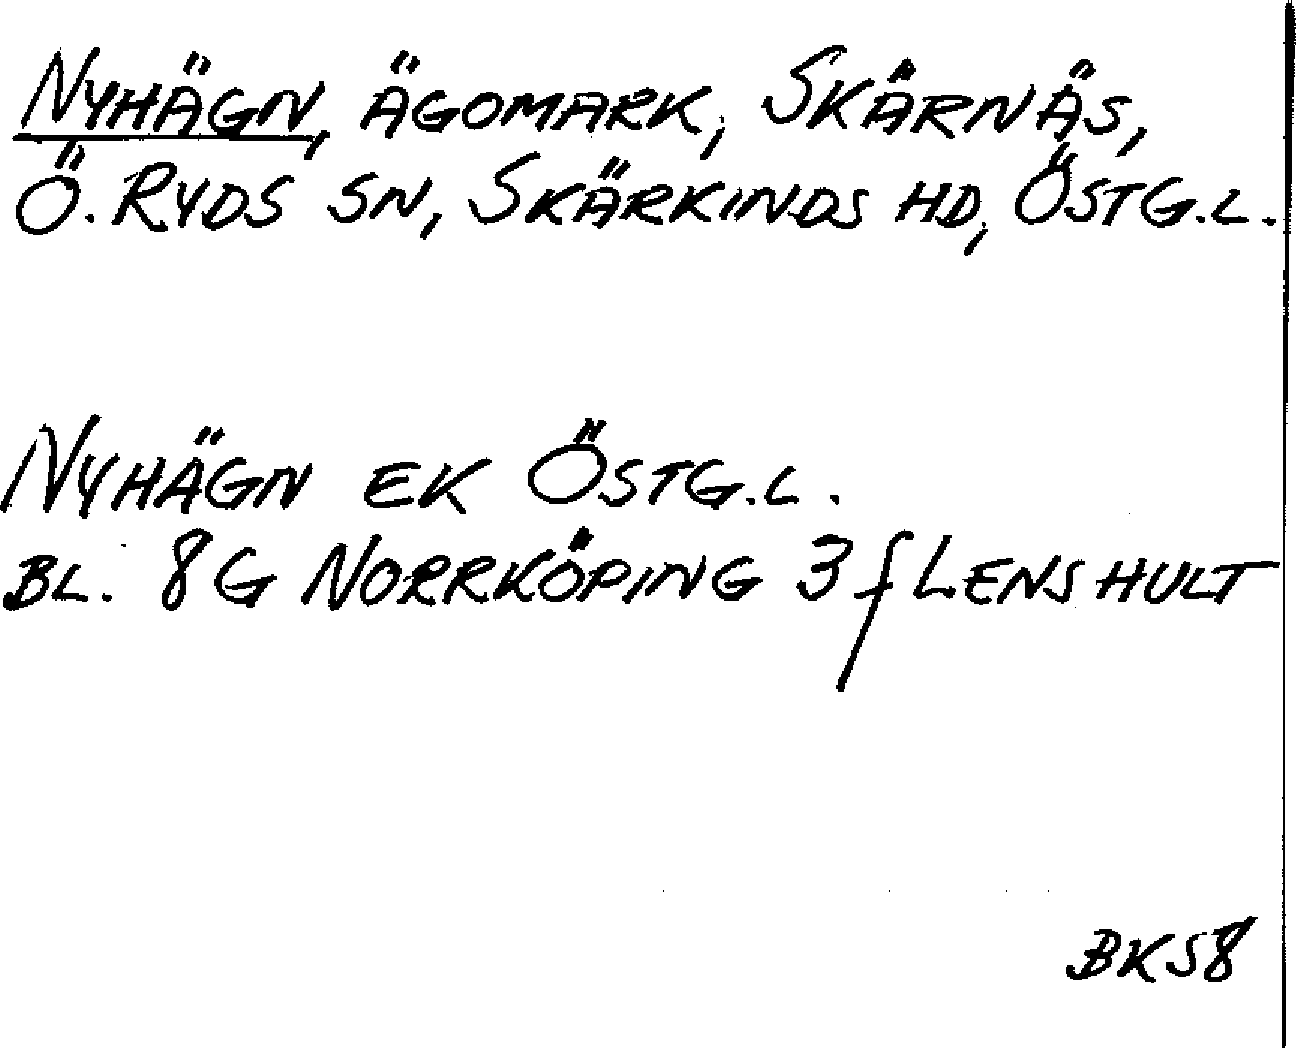 NYHÄGN, ÄGOMARK, SKÄRNÄS,
Ö. RYDS SN, SKÄRKINDS HD, ÖSTG.L.
NYHÄGN EK ÖSTG.L.
BL. 8G NORRKÖPING 3f LENSHULT
BKS8